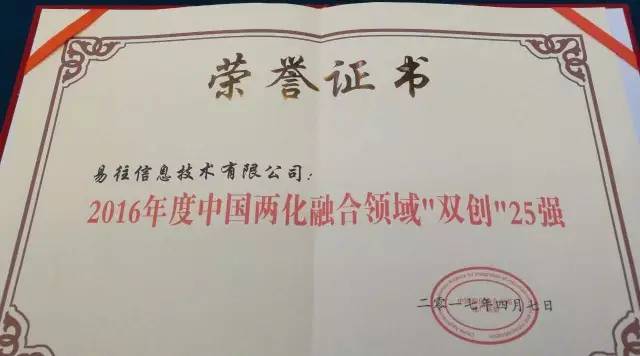 荣誉证书
易往信息技术有限公司:
2016年度中国两化融合领域"双创"25强
二〇一七年四月七日